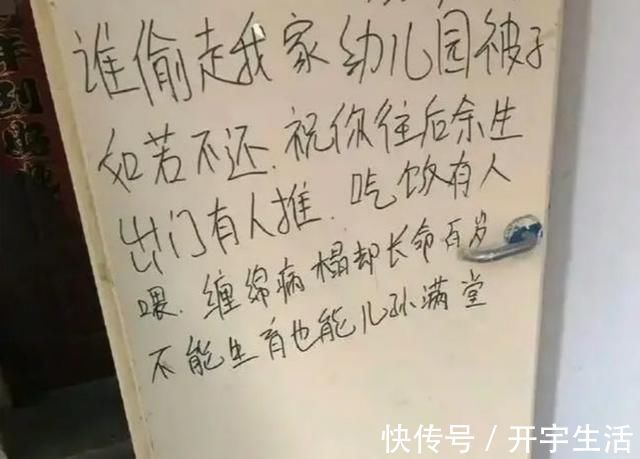 谁偷走我家幼儿园被子
如若不还.祝你往后余生
出门有人推.吃饭有人
喂.缠绵病榻却长命百岁
不能生育也能儿孙满堂
快传号/开宇生活